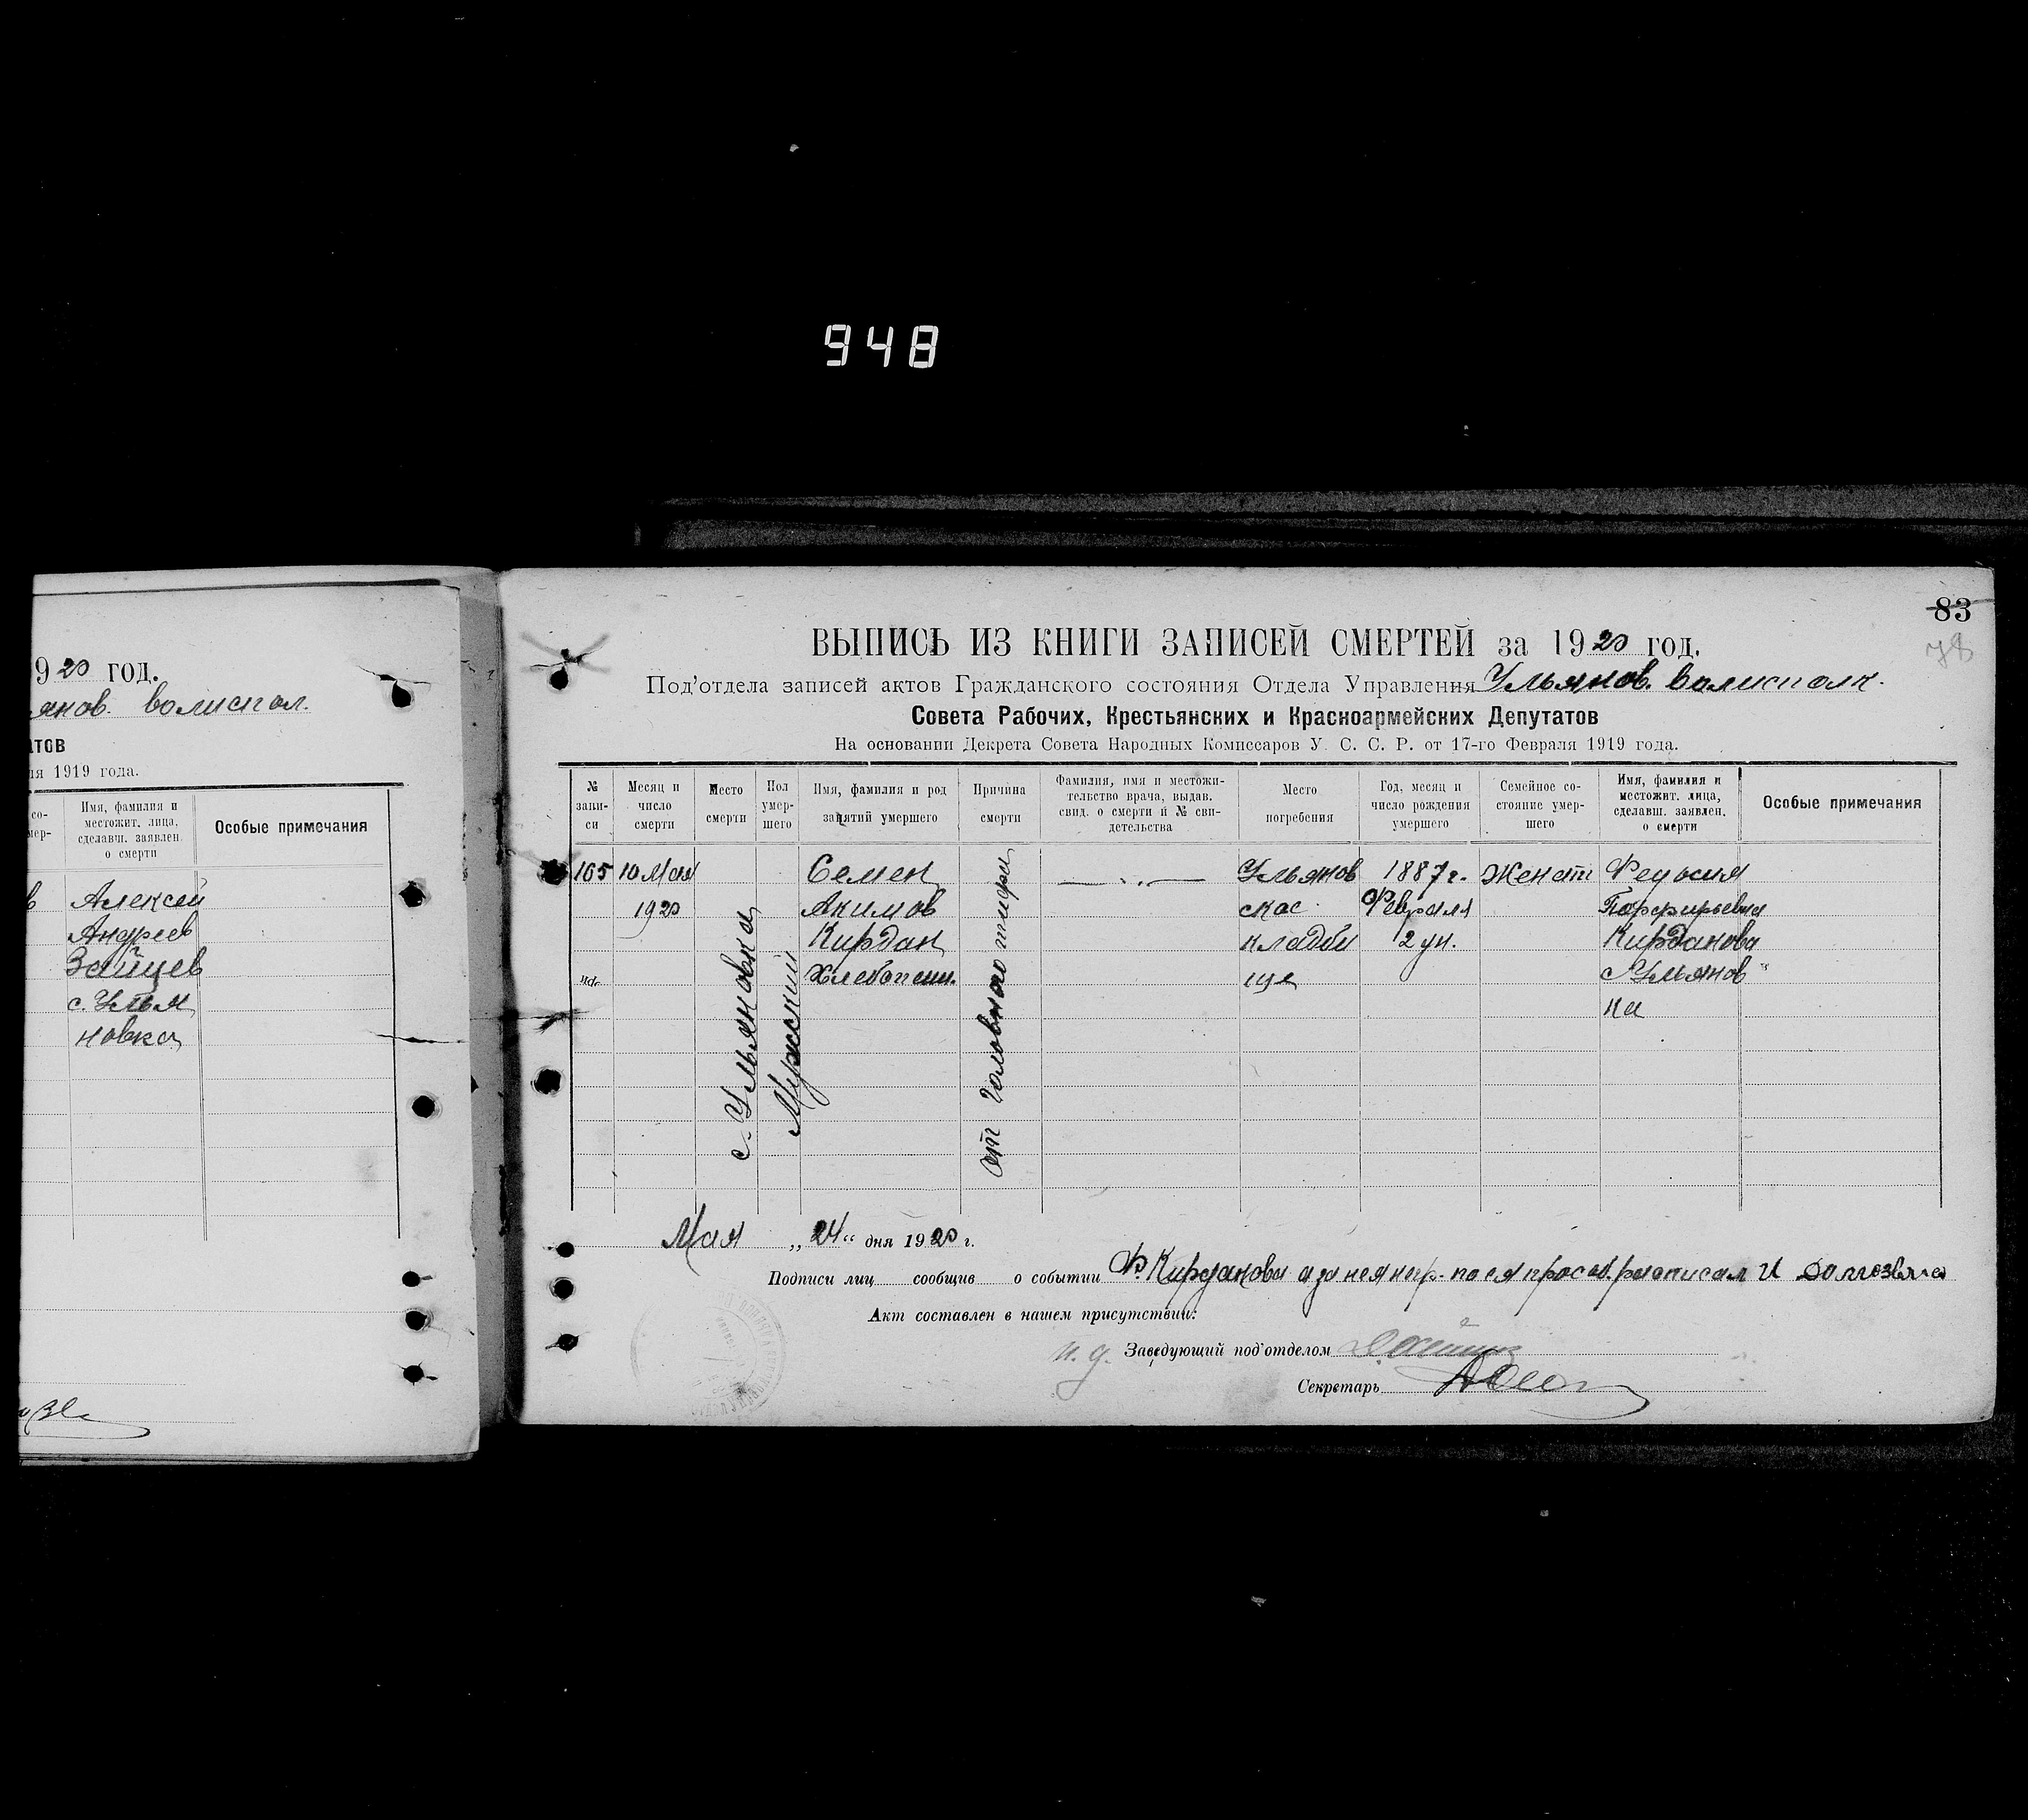 948
920 год.
янов. волиспол.
атов
ля 1919 года.
со-
мер-
Имя, фамилия и
местожит. лица,
сделавш. заявлен.
о смерти
Особые примечания
в Алексей
Андреев
Зайцев
с. Улья
новка
83
78
ВЫПИСЬ ИЗ КНИГИ ЗАПИСЕЙ СМЕРТЕЙ за 1920 год.
Под'отдела записей актов Гражданского состояния Отдела Управления Ульянов. волисполк.
Совета Рабочих, Крестьянских и Красноармейских Депутатов
На основании Декрета Совета Народных Комиссаров У. С. С. Р. от 17-го Февраля 1919 года.
№
запи-
си
Месяц и
число
смерти
Место
смерти
Пол
умер-
шего
Имя, фамилия и род
занятий умершего
Причина
смерти
Фамилия, имя и местожи-
тельство врача, выдав.
свид. о смерти и № сви-
детельства
Место
погребения
Год, месяц и
число рождения
умершего
Семейное со-
стояние умер-
шего
Имя, фамилия и
местожит. лица,
сделавш. заявлен.
о смерти
Особые примечания
165
10 Мая
1920
с. Ульяновка
Мужский
Семен
Акимов
Кирдан
Хлебопаш.
от головного тифа
Ульянов
ское
кладби
ще
1887 г.
Февраля
12 ун.
Женат
Федосия
Порфирьевна
Кирданова
с Ульянов
ка
Мая „24“ дня 1920 г.
Подписи лиц сообщив о событии Ф. Кирданова а за нея негр. по ея прозб. росписал И
Акт составлен в нашем присутствии:
и. д. Заведующий под'отделом
Секретарь